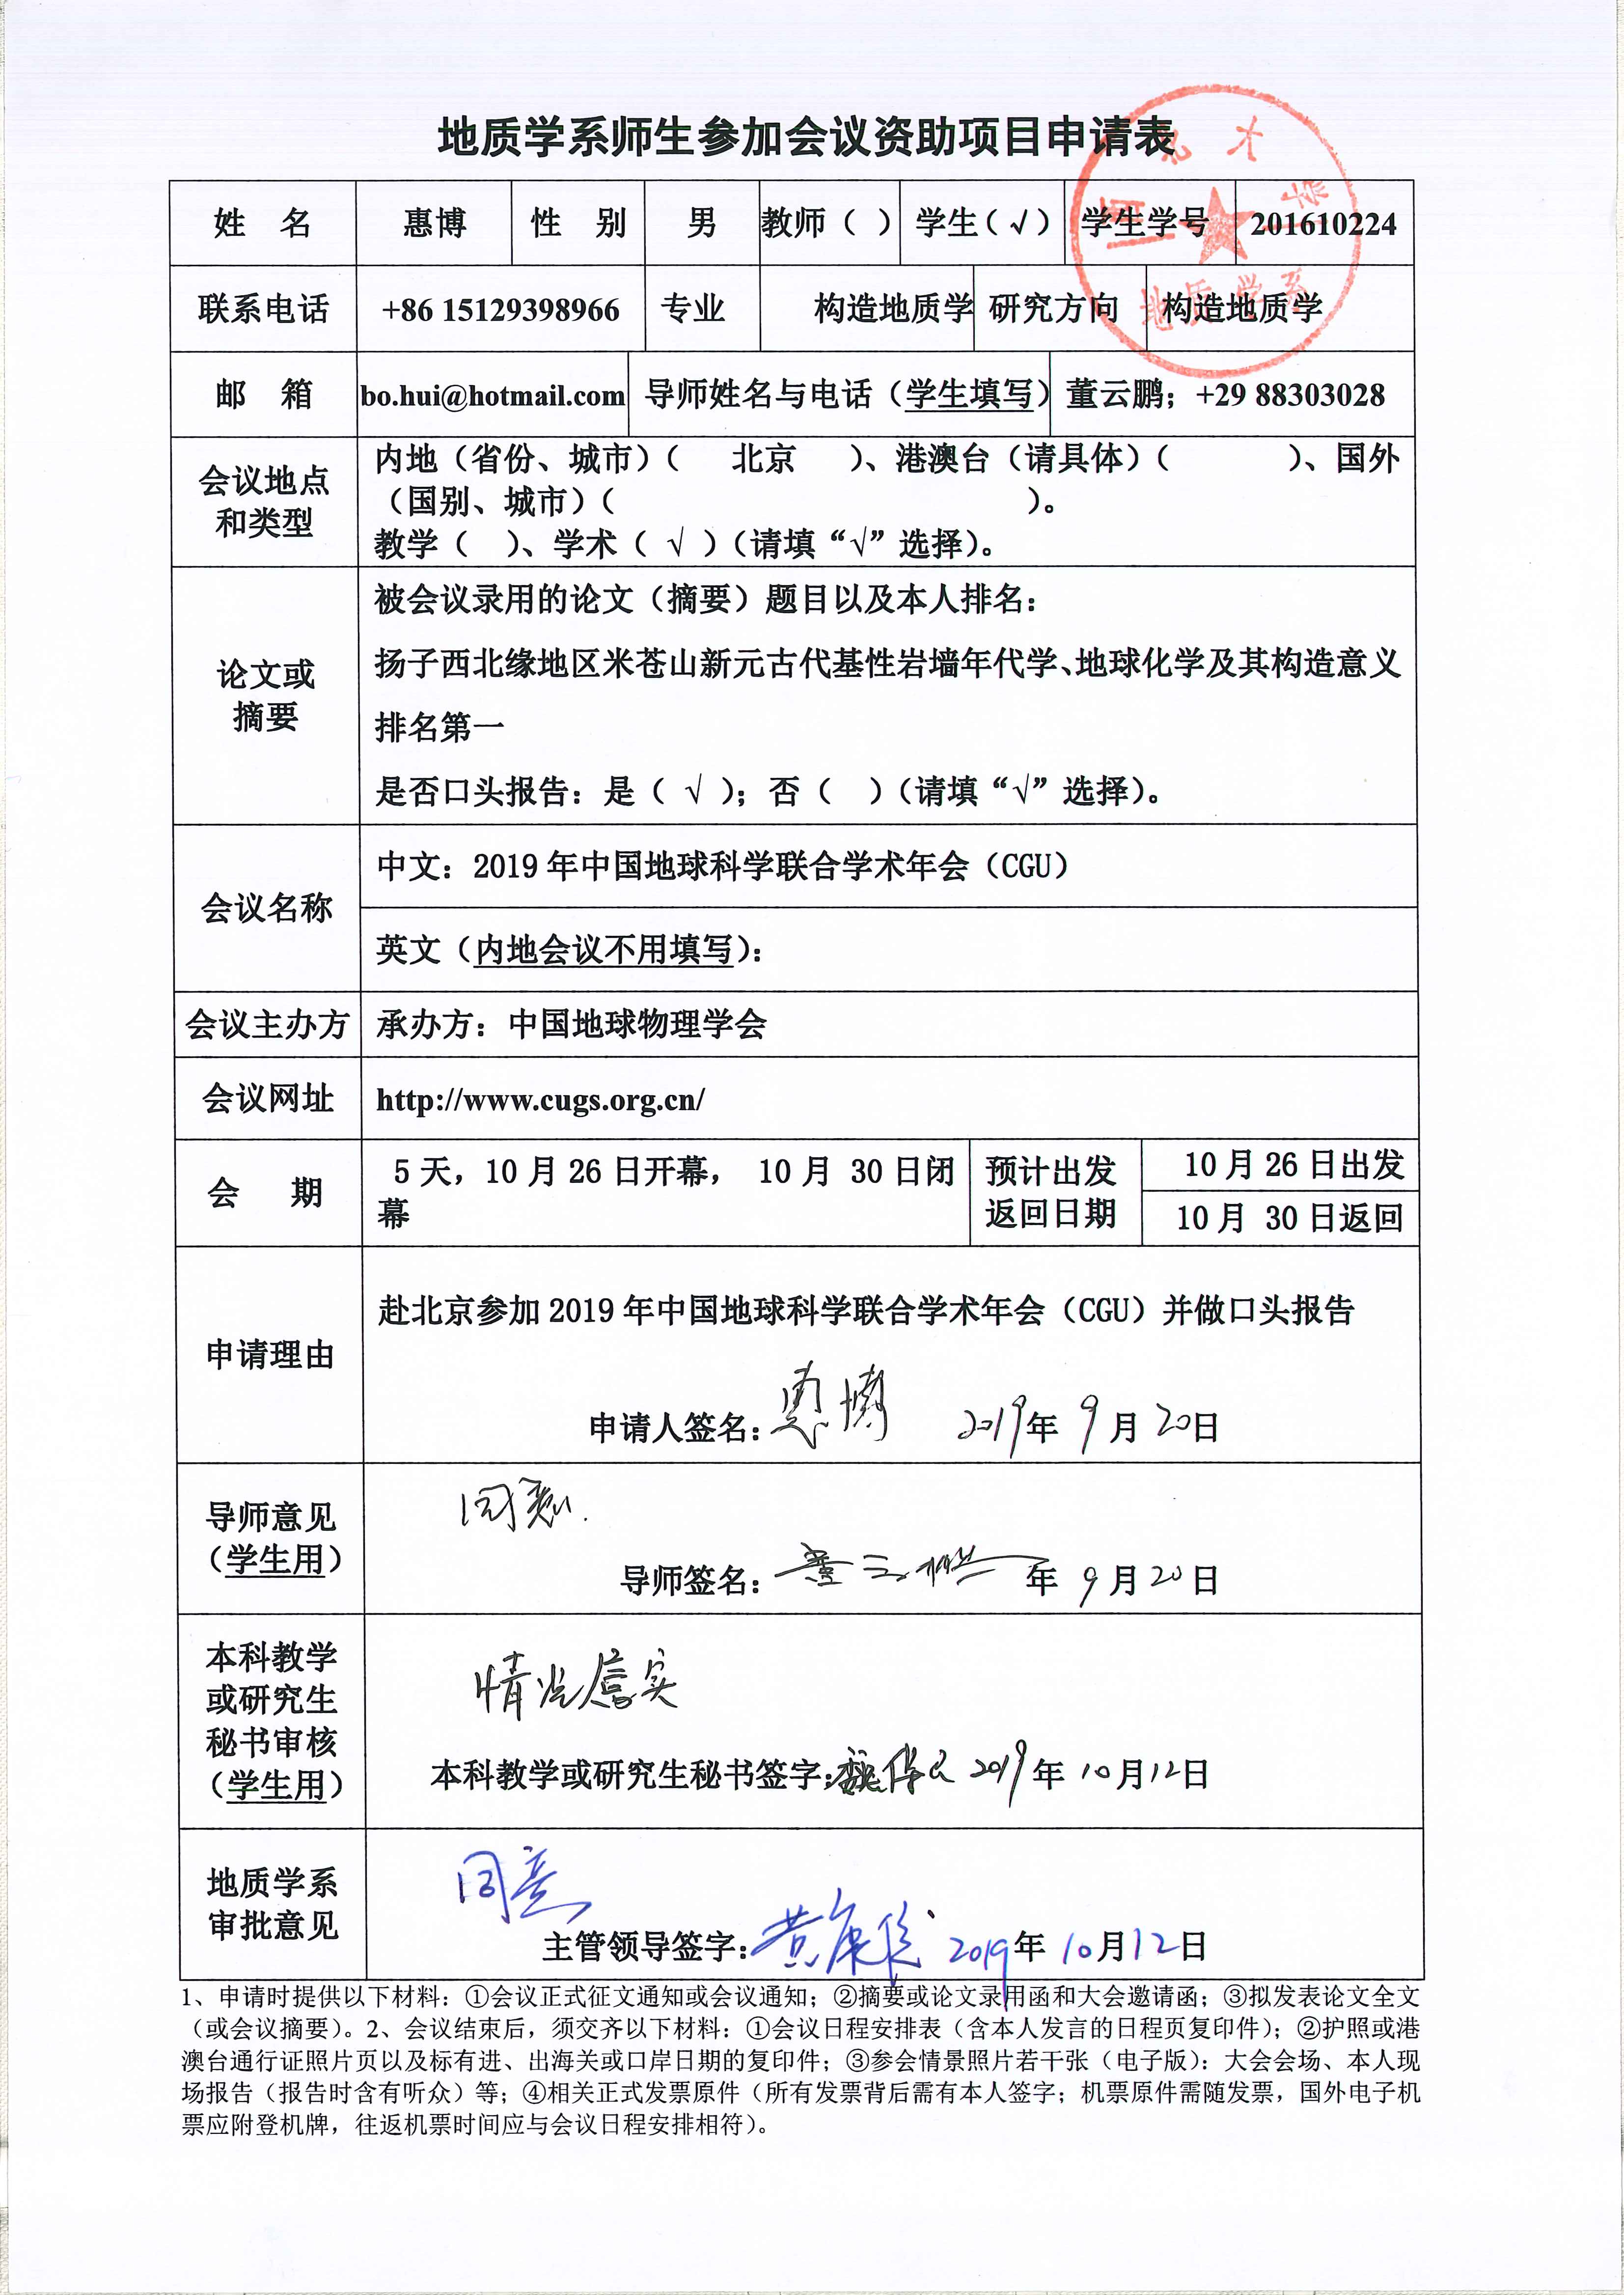 地质学系师生参加会议资助项目申请表
姓 名 惠博 性 别 男 教师（ ） 学生（√） 学生学号 201610224
联系电话 +86 15129398966 专业 构造地质学 研究方向 构造地质学
邮 箱 bo.hui@hotmail.com 导师姓名与电话（学生填写） 董云鹏；+29 88303028
会议地点和类型
内地（省份、城市）（ 北京 ）、港澳台（请具体）（ ）、国外
（国别、城市）（ ）。
教学（ ）、学术（ √ ）（请填“√”选择）。
论文或摘要
被会议录用的论文（摘要）题目以及本人排名：
扬子西北缘地区米苍山新元古代基性岩墙年代学、地球化学及其构造意义
排名第一
是否口头报告：是（ √ ）；否（ ）（请填“√”选择）。
会议名称
中文：2019 年中国地球科学联合学术年会（CGU）
英文（内地会议不用填写）：
会议主办方 承办方：中国地球物理学会
会议网址 http://www.cugs.org.cn/
会 期
5 天，10 月 26 日开幕， 10 月 30 日闭
幕
预计出发
返回日期
10 月 26 日出发
10 月 30 日返回
申请理由
赴北京参加 2019 年中国地球科学联合学术年会（CGU）并做口头报告
申请人签名：惠博 2019年 9 月 20日
导师意见
（学生用）
同意.
导师签名：董云鹏 年 9 月 20 日
本科教学
或研究生
秘书审核
（学生用）
情况属实
本科教学或研究生秘书签字： 2019 年 10 月 12 日
地质学系
审批意见
同意
主管领导签字：黄康俊 2019 年 10 月 12 日
西北大学
地质学系
1、申请时提供以下材料：①会议正式征文通知或会议通知；②摘要或论文录用函和大会邀请函；③拟发表论文全文
（或会议摘要）。2、会议结束后，须交齐以下材料：①会议日程安排表（含本人发言的日程页复印件）；②护照或港
澳台通行证照片页以及标有进、出海关或口岸日期的复印件；③参会情景照片若干张（电子版）：大会会场、本人现
场报告（报告时含有听众）等；④相关正式发票原件（所有发票背后需有本人签字；机票原件需随发票，国外电子机
票应附登机牌，往返机票时间应与会议日程安排相符）。